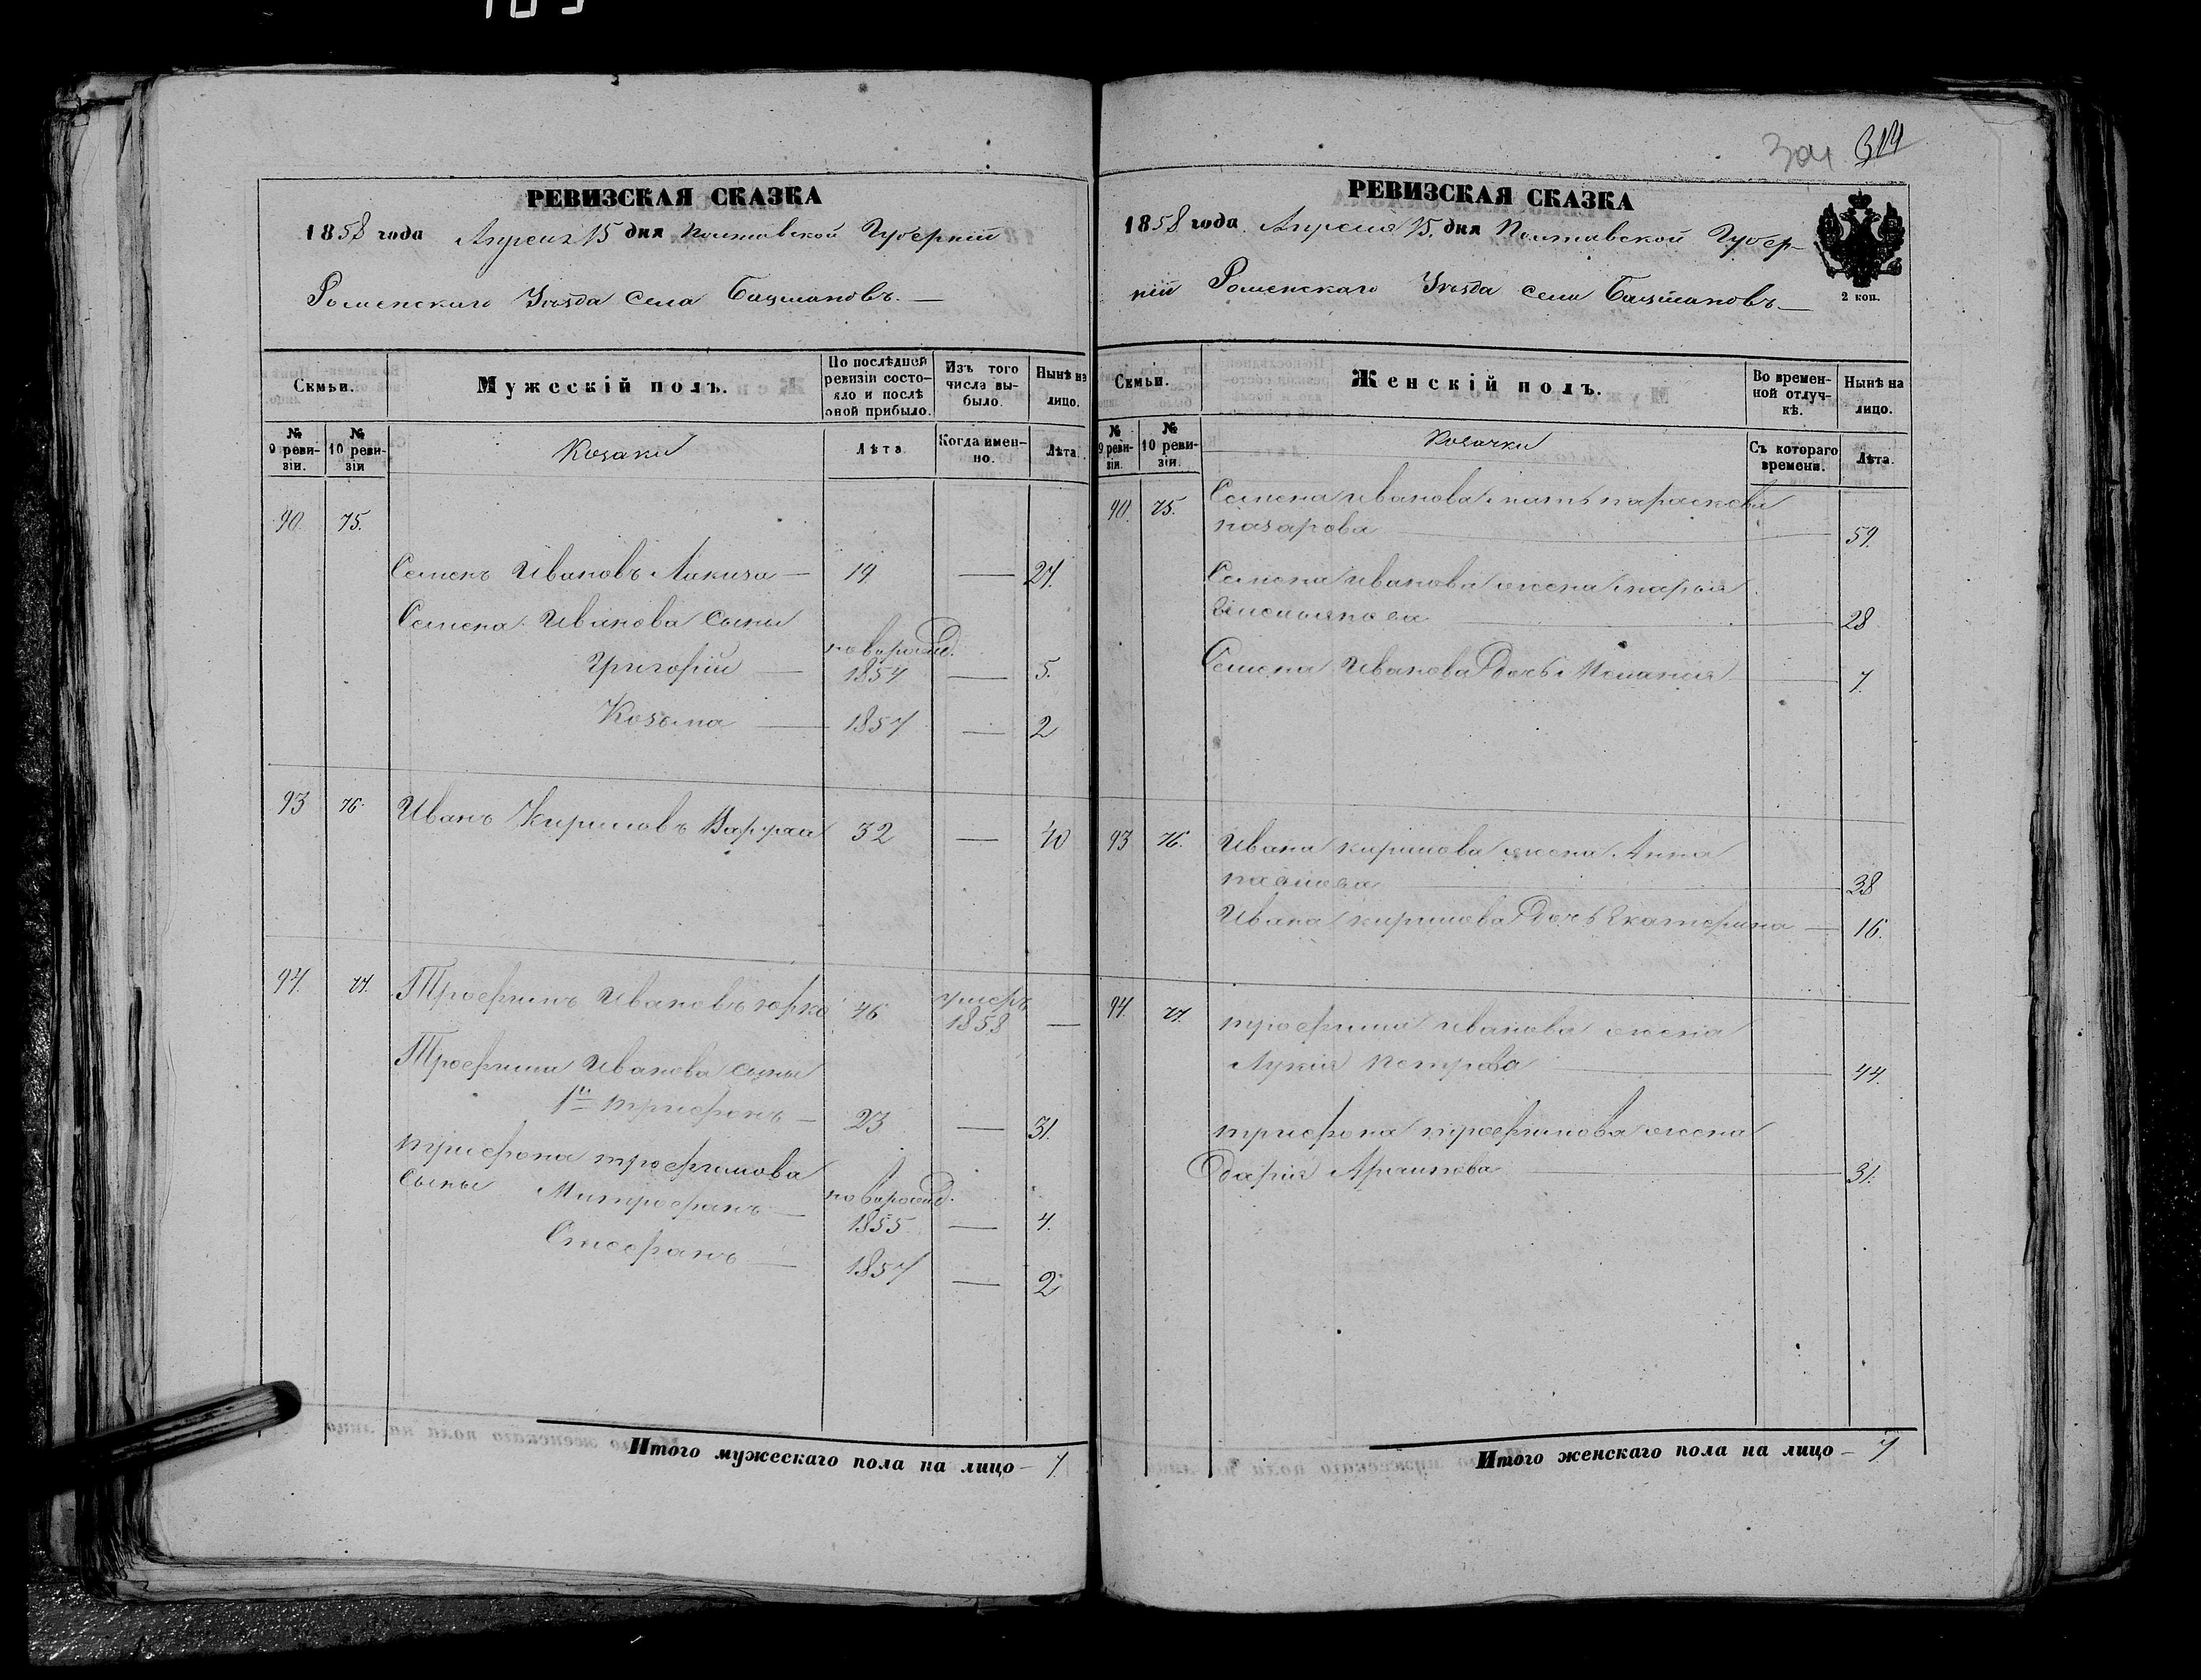 304 314
РЕВИЗСКАЯ СКАЗКА
1858 года Апреля 15 дня Полтавской Губернiи
Роменскаго Уѣзда Села Бацмановъ.
Семьи.
Мужескiй полъ.
По послѣдней ревизiи состояло и послѣ оной прибыло.
Изъ того числа выбыло.
Нынѣ на лицо.
№ 9 ревизiи.
№ 10 ревизiи
Козаки
Лѣта
Когда именно.
Лѣта.
90. 75.
Семенъ Ивановъ Лакиза — 19 — 27.
Семена Иванова сыны
новорожд.
Григорiй — 1854 — 5.
Козьма — 1857 — 2
93 76. Иванъ Кириловъ 32 — 40
94. 77. Трофимъ Ивановъ Юрко 46 умеръ 1858 —
Трофима Иванова сыны
1й Трифонъ — 23 — 31.
Трифона Трофимова
сыны Митрофанъ — новорожд. 1855 — 4.
Стефанъ — 1857 — 2
Итого мужескаго пола на лицо — 7.
РЕВИЗСКАЯ СКАЗКА
1858 года Апреля 15 дня Полтавской Губер-
нiи Роменскаго Уѣзда Села Бацмановъ
2 коп.
Семьи.
Женскiй полъ.
Во временной отлучкѣ.
Нынѣ на лицо.
№ 9 ревизiи.
№ 10 ревизiи.
Козачки
Съ котораго времени.
Лѣта.
90. 75. Семена Иванова мать Параскева
Назарова 59.
Семена Иванова жена Марья
28
Семена Иванова дочь Меланiя 7.
93 76. Ивана Кирилова жена Анна
Павлова 38
Ивана Кирилова дочь Екатерина — 16.
94. 77. Трофима Иванова жена
Лукiя Петрова 44.
Трифона Трофимова жена
Дарiя Архипова 31.
Итого женскаго пола на лицо — 7